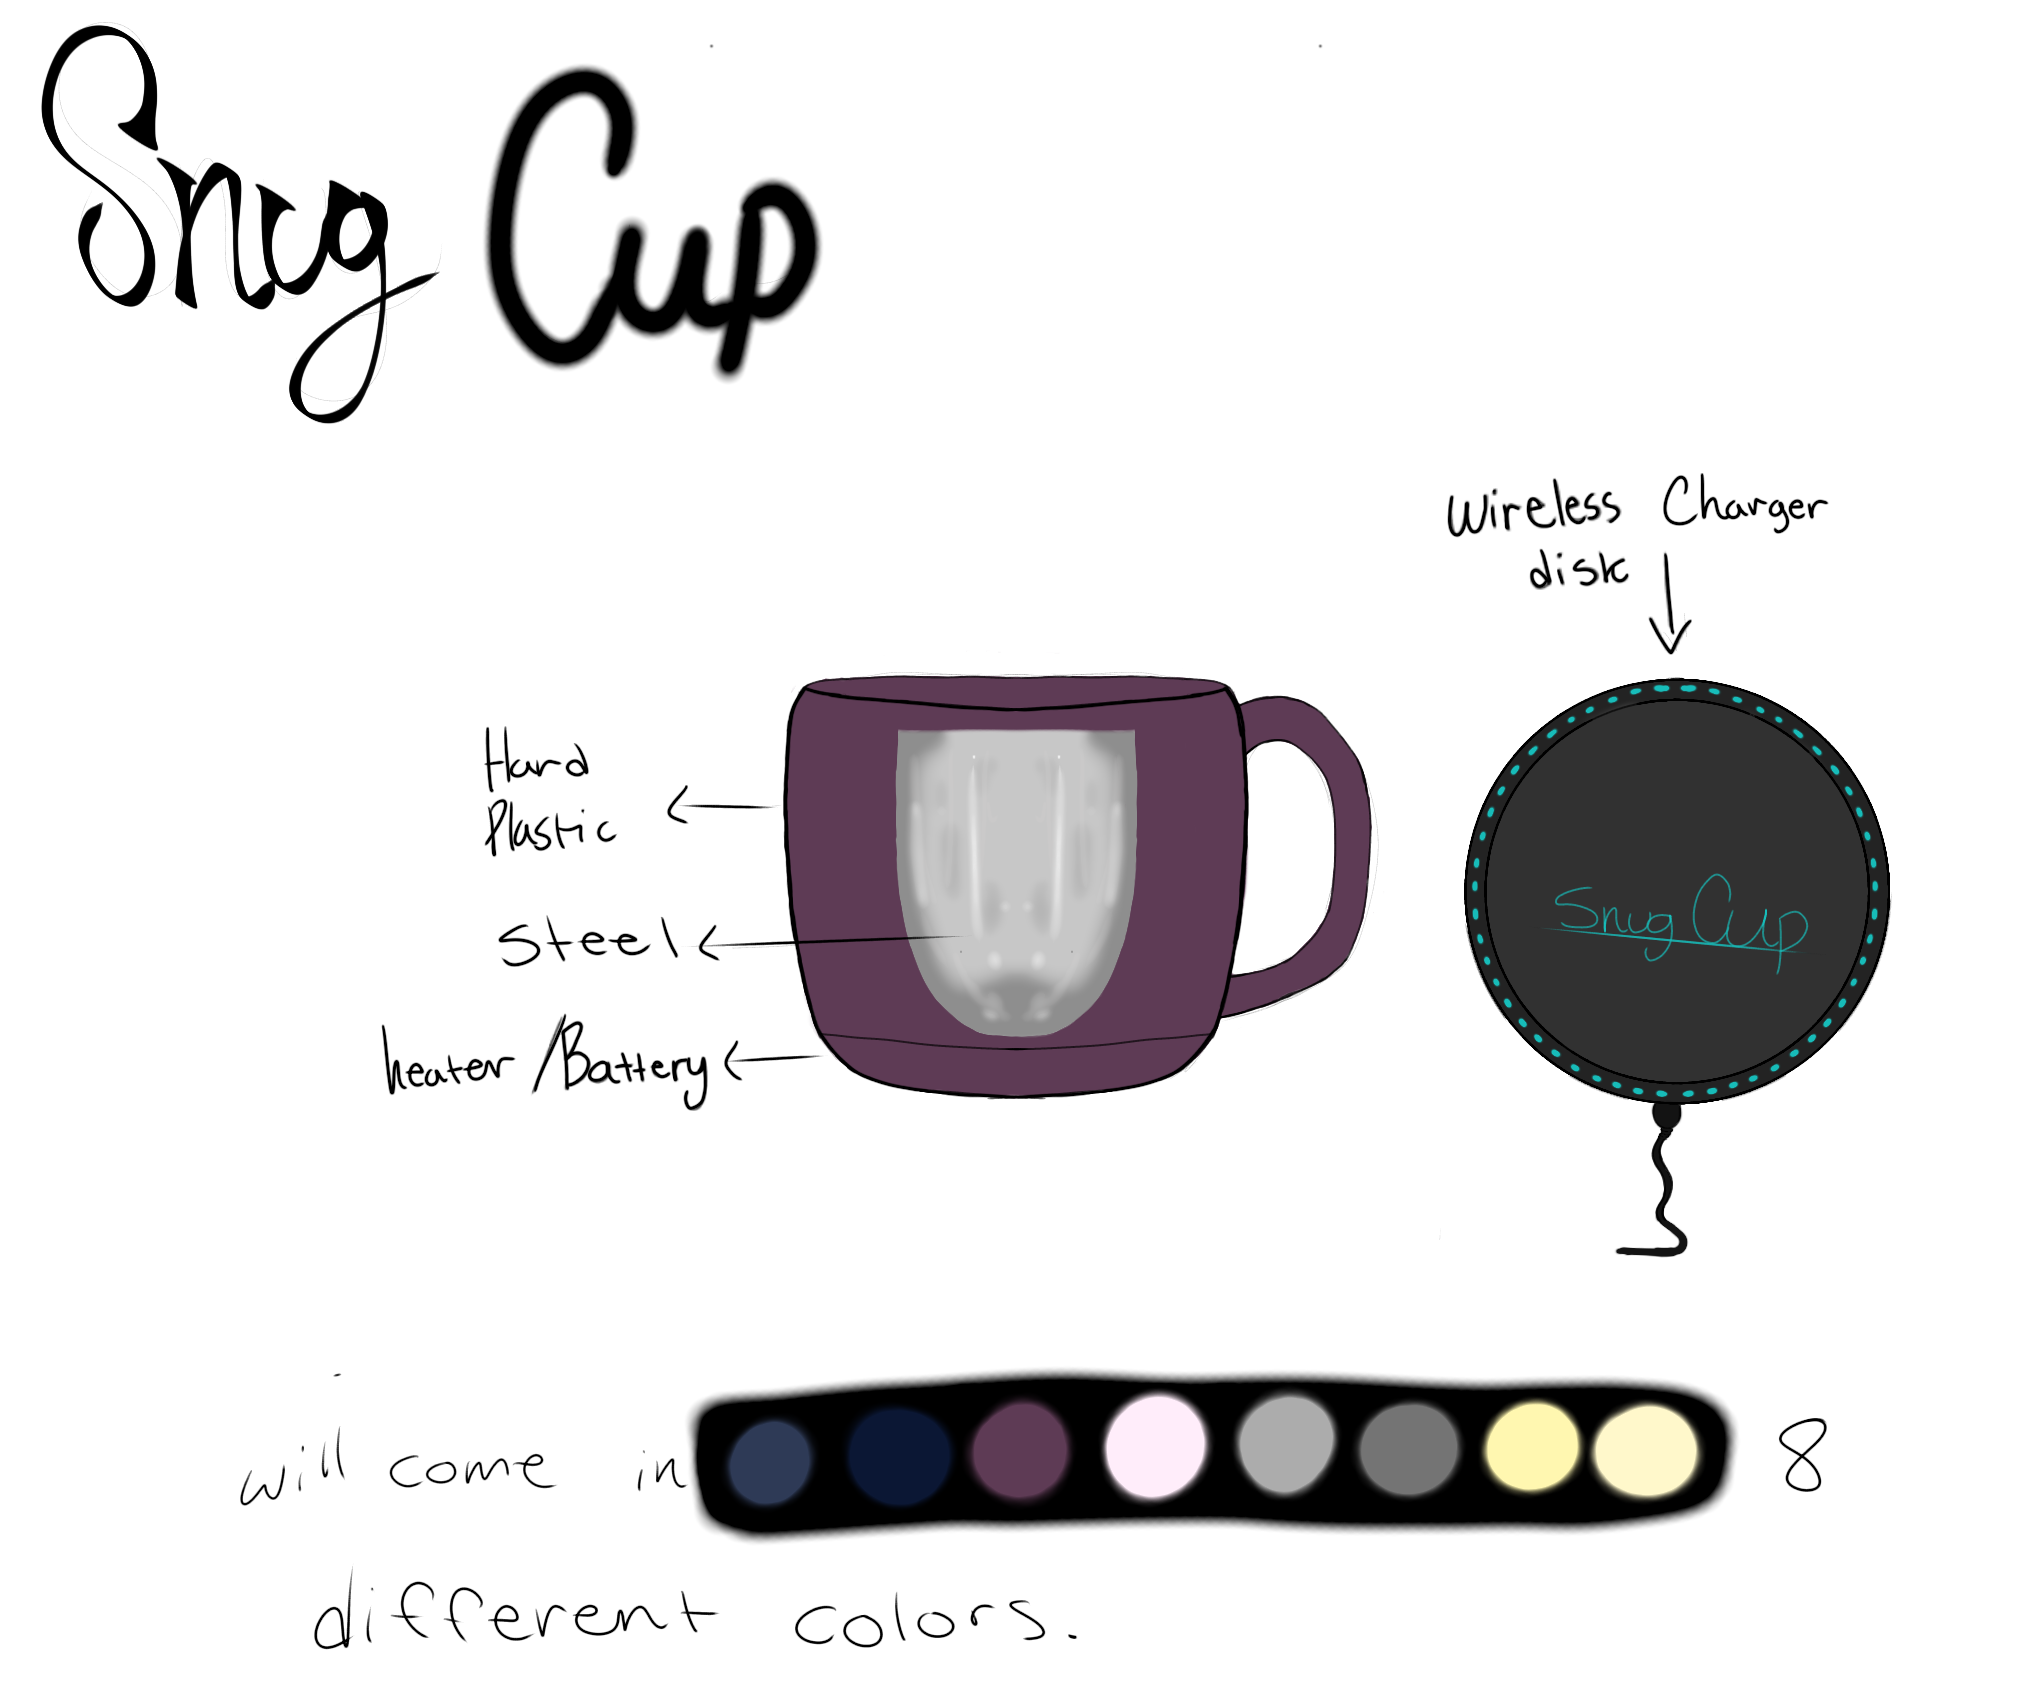 Snug Cup
Wireless Charger
disk
Hard
Plastic
Steel
heater/Battery
Snug Cup
will come in 8
different colors.